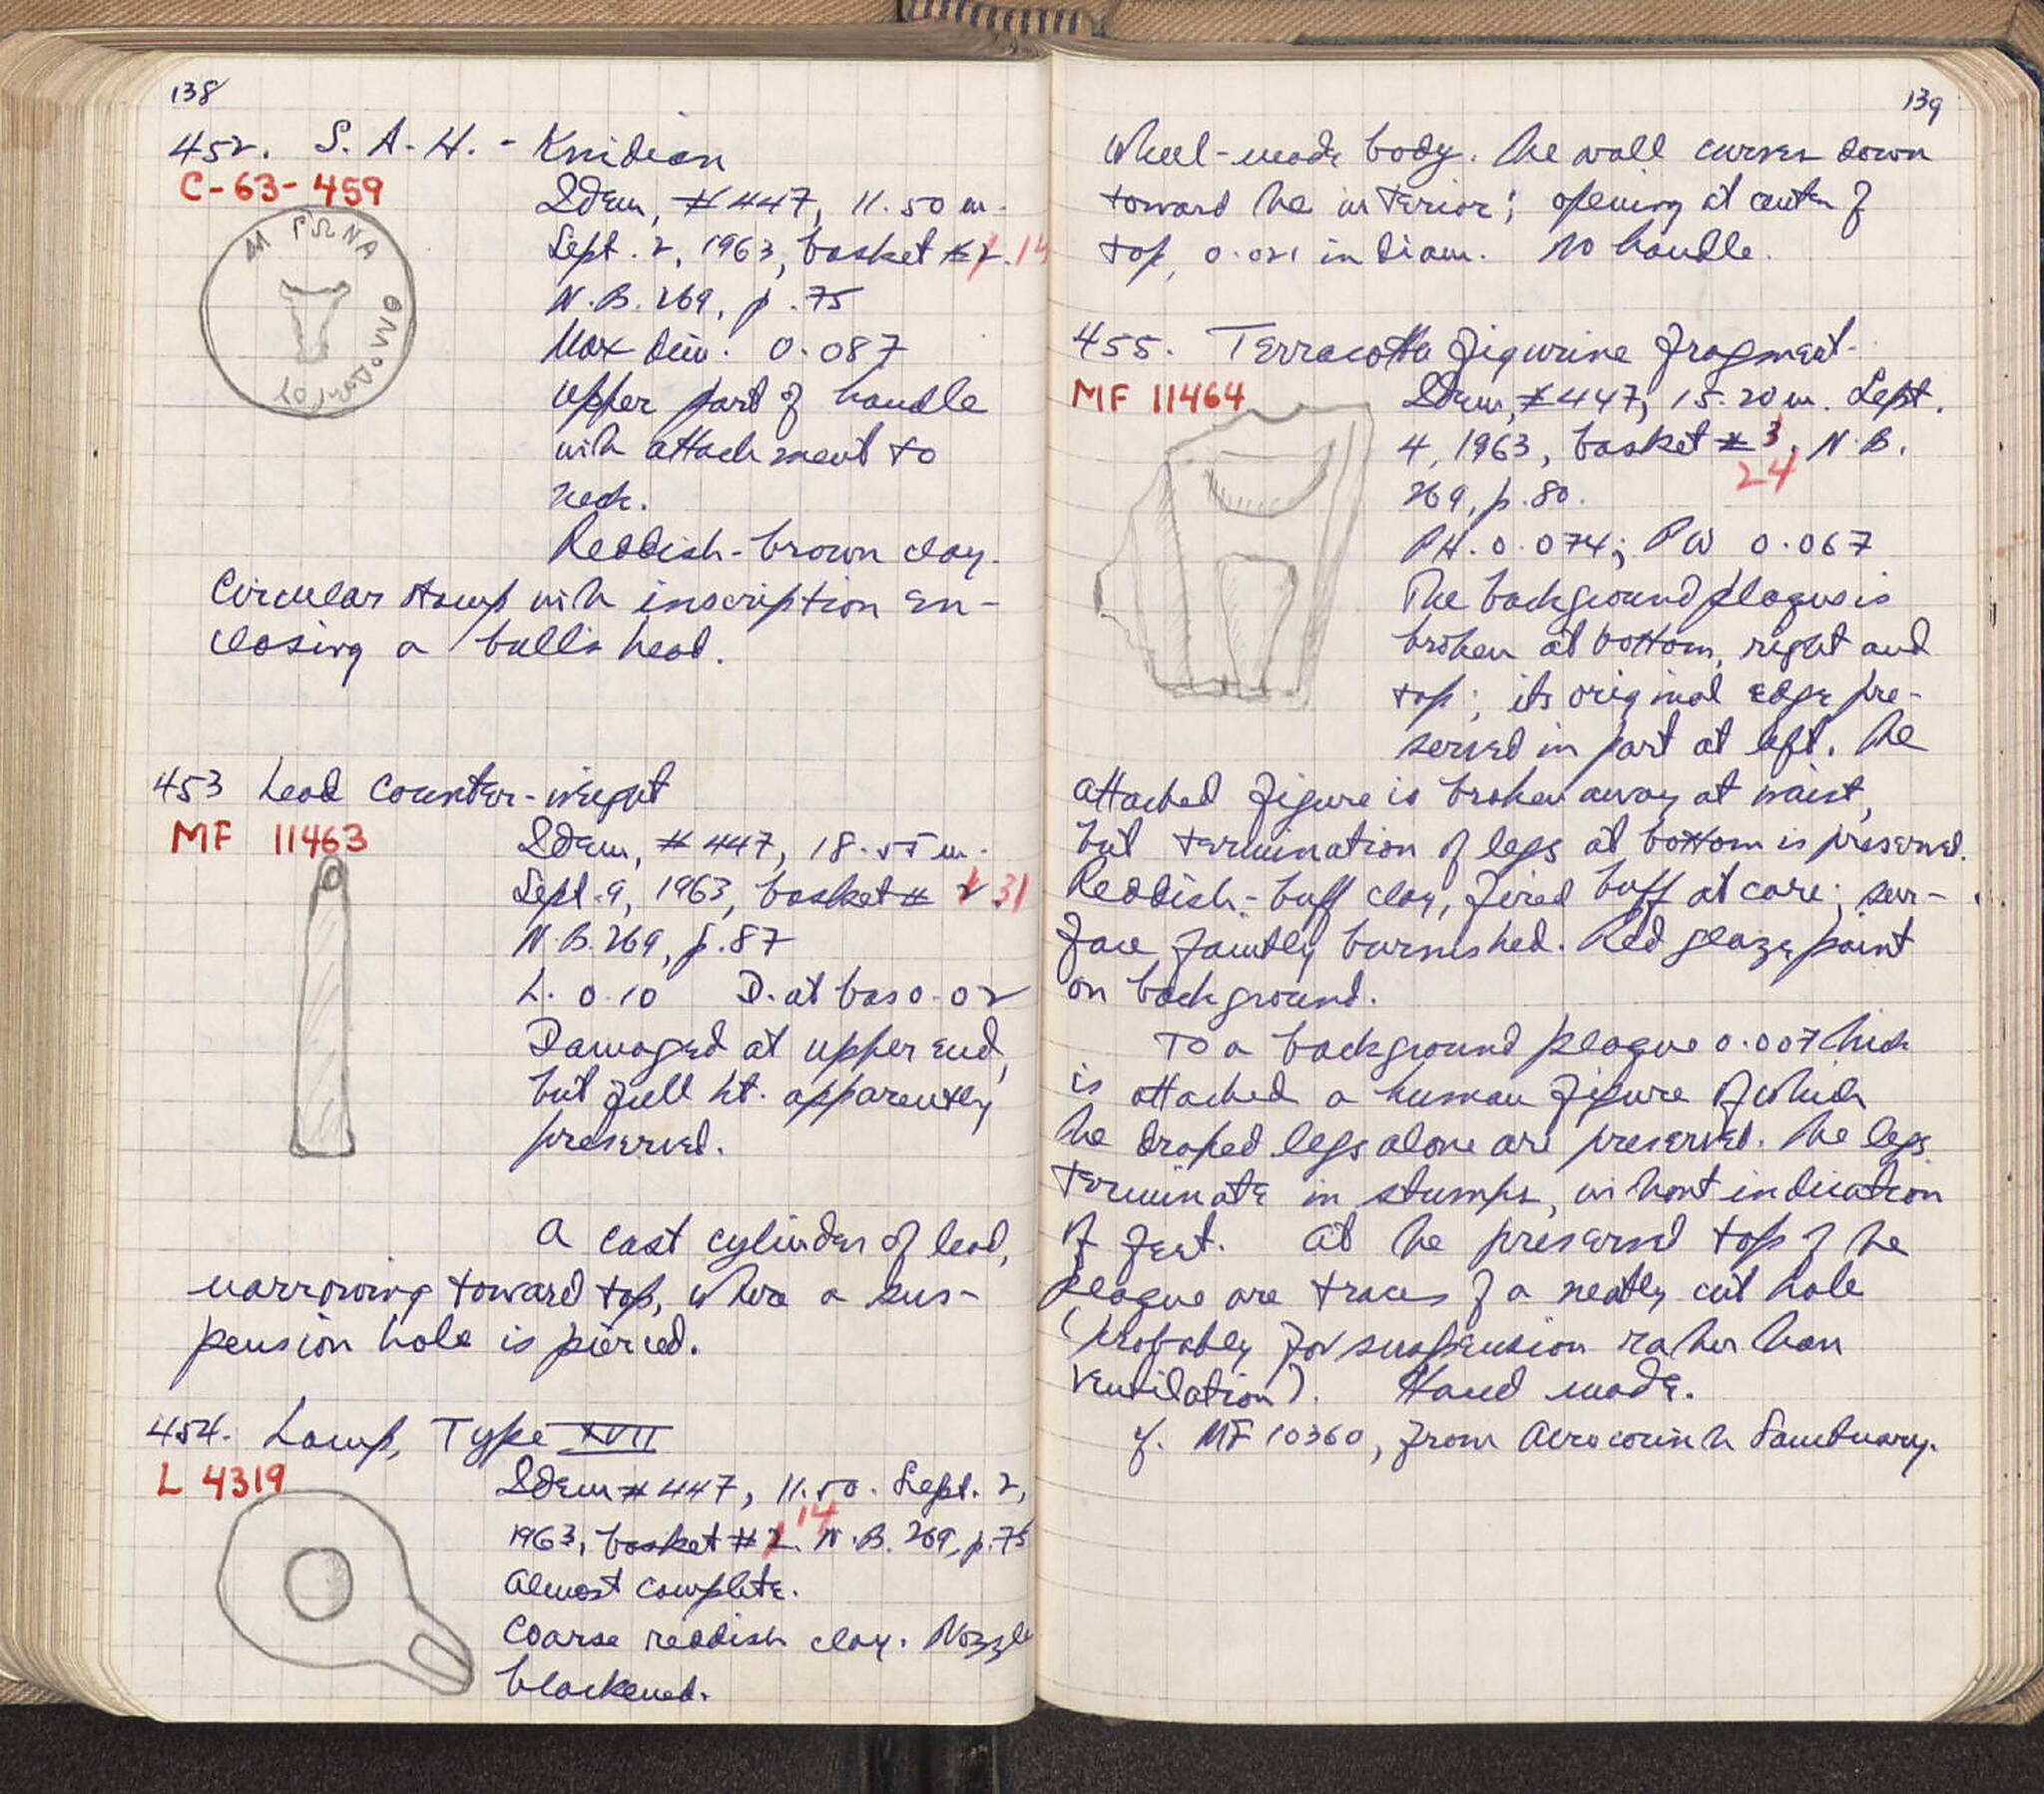 138
452. S. A. H. - Knidian
C-63-459
Idem, #447, 11.50 m.
Sept. 2, 1963, basket #2. 14
N.B. 269, p. 75
Max dim. 0.087
Upper part of handle
with attachment to
neck.
Reddish-brown clay.
Circular stamp with inscription en-
closing a bull's head.
453 Lead counter-weight
MF 11463
Idem, #447, 18.55 m.
Sept. 9, 1963, basket # 2. 31
N.B. 269, p. 87
L. 0.10 D. at bas 0.02
Damaged at upper end,
but full ht. apparently
preserved.
A cast cylinder of lead,
narrowing toward top, where a sus-
pension hole is pierced.
454. Lamp, Type XVII
L 4319
Idem #447, 11.50. Sept. 2,
14
1963, basket #2. N.B. 269, p. 75
Almost complete.
Coarse reddish clay. Nozzle
blackened.
139
Wheel-made body. The wall curves down
toward the interior; opening at center of
top, 0.021 in diam. No handle.
455. Terracotta figurine fragment.
MF 11464
Idem, #447, 15.20 m. Sept.
4, 1963, basket #3, N.B.
24
269, p. 80.
PH. 0.074; PW 0.067
The background plaque is
broken at bottom, right and
top; its original edge pre-
served in part at left. The
attached figure is broken away at waist,
but termination of legs at bottom is preserved.
Reddish-buff clay, fired buff at core; sur-
face faintly burnished. Red glaze paint
on background.
To a background plaque 0.007 thick
is attached a human figure of which
the draped legs alone are preserved. The legs
terminate in stumps, without indication
of feet. At the preserved top of the
plaque are traces of a neatly cut hole
(probably for suspension rather than
ventilation). Hand made.
cf. MF 10360, from Acrocorinth Sanctuary.